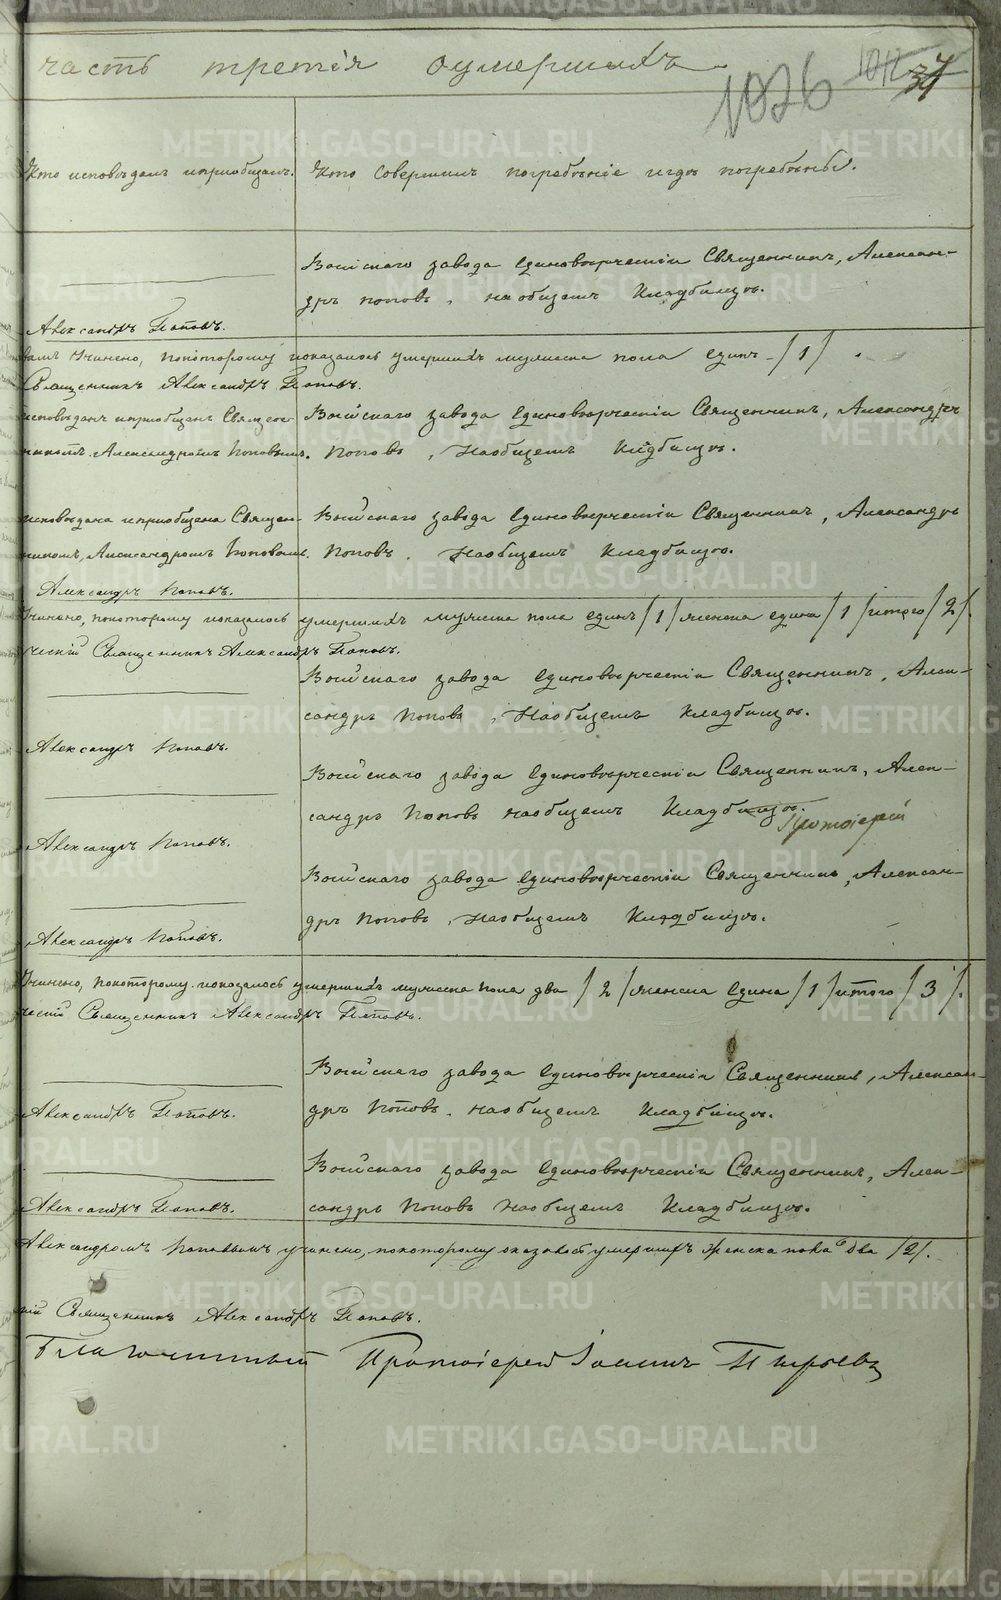 часть третія оумершихъ.
1026
1012
37
Кто исповѣдалъ и приобщалъ.
Кто совершилъ погребѣніе и гдѣ погребѣны.
завода Единовѣрческій Священникъ, Алексан-
дръ Поповъ, на общемъ Кладбищѣ.
Александръ Поповъ.
учинено, по которому показалось умершихъ мужеска пола единъ /1/.
Священникъ Александръ Поповъ.
исповѣданъ и приобщенъ Священ-
никомъ Александромъ Поповымъ.
завода Единовѣрческій Священникъ, Александръ
Поповъ, на общемъ Кладбищѣ.
исповѣдана и приобщена Священ-
никомъ, Александромъ Поповымъ.
завода Единовѣрческій Священникъ, Александръ
Поповъ. на общемъ Кладбищѣ.
Александръ Поповъ.
Учинено, по которому показалось умершихъ мужеска пола единъ /1/ женска едина /1/ итого /2/.
ческій Священникъ Александръ Поповъ.
завода Единовѣрческій Священникъ, Алек-
сандръ Поповъ, на общемъ Кладбищѣ.
Александръ Поповъ.
завода Единовѣрческій Священникъ, Алек-
сандръ Поповъ на общемъ Кладбищѣ.
Протоіерей
Александръ Поповъ.
завода Единовѣрческій Священникъ, Алексан-
дръ Поповъ, на общемъ Кладбищѣ.
Александръ Поповъ.
Учинено, по которому показалось умершихъ мужеска пола два /2/ женска едина /1/ итого /3/.
ческій Священникъ Александръ Поповъ.
завода Единовѣрческій Священникъ, Алексан-
дръ Поповъ. на общемъ Кладбищѣ.
Александръ Поповъ.
завода Единовѣрческій Священникъ, Алек-
сандръ Поповъ на общемъ Кладбищѣ.
Александръ Поповъ.
Александромъ Поповымъ учинено, по которому оказалось умершихъ женска пола два /2/.
Священникъ Александръ Поповъ.
Благочинный Протоіерей Іоаннъ
METRIKI.GASO-URAL.RU